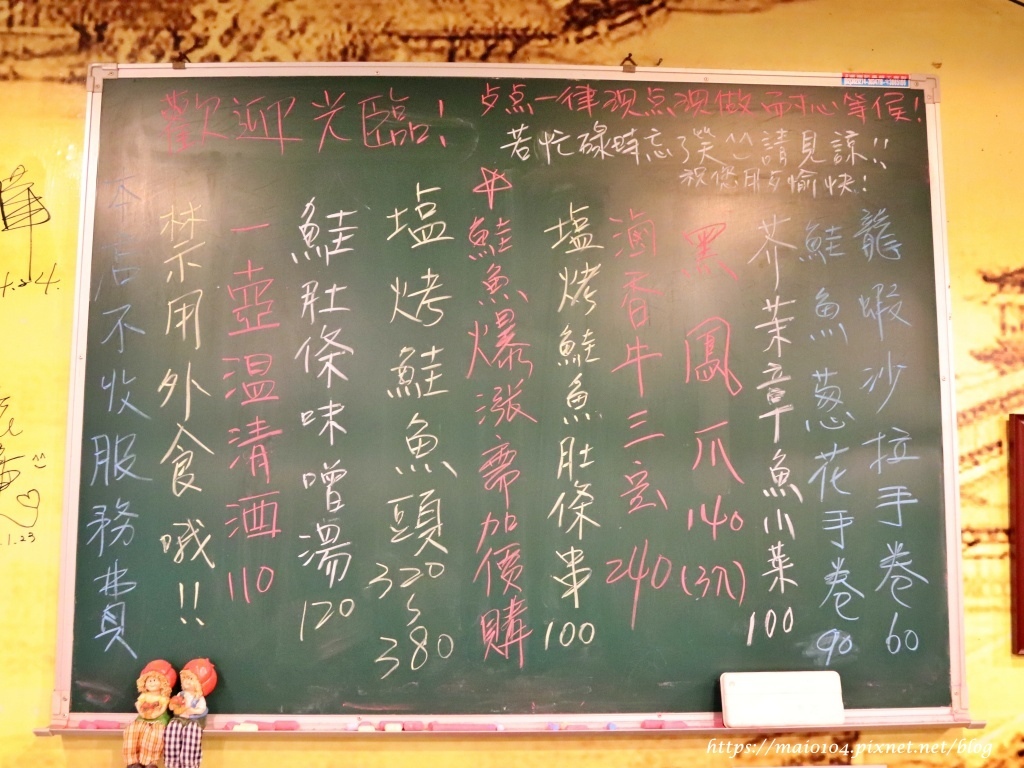 歡迎光臨!
点点一律現点現做 耐心等候!
若忙碌時忘了笑^^請見諒!!
祝您用歺愉快!
龍蝦沙拉手卷 60
鮭魚葱花手卷 90
芥茉章魚小菜 100
黑鳳爪 140 (3爪)
滷香牛三宝 240
塩烤鮭魚肚條串 100
鮭魚爆漲需加價購
塩烤鮭魚頭 320~380
鮭肚條味噌湯 120
一壺温清酒 110
禁示用外食哦!!
本店不收服務費
https://maio104.pixnet.net/blog